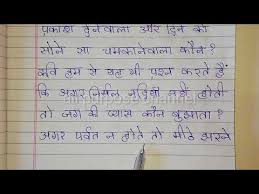 प्रकाश देनेवाला और दिन को
सोने सा चमकानेवाला कौन?
कवि हम से यह भी प्रश्न करते हैं
कि अगर निर्मल नदियाँ नहीं होती
तो जग की प्यास कौन बुझाता?
अगर पर्वत न होते तो मीठे झरने